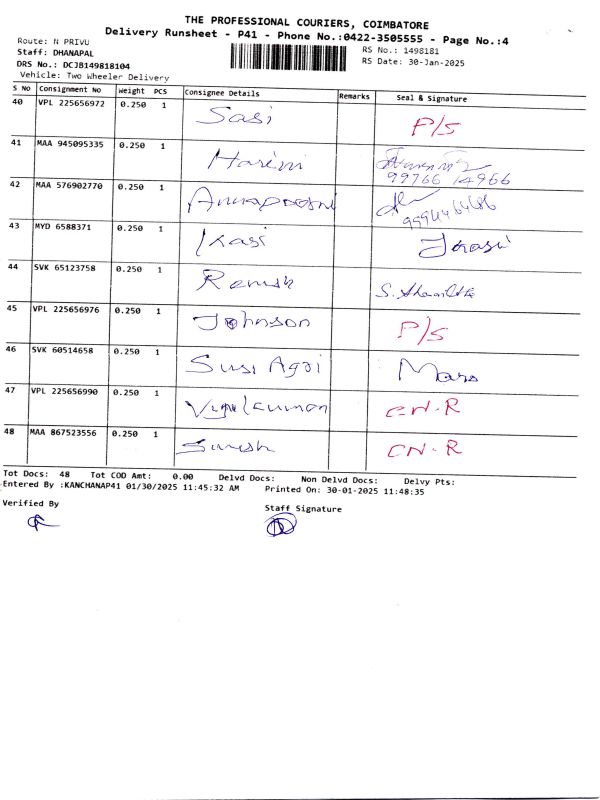 THE PROFESSIONAL COURIERS, COIMBATORE
Delivery Runsheet - P41 - Phone No.:0422-3505555 - Page No.:4
Route: N PRIVU
RS No.: 1498181
Staff: DHANAPAL
RS Date: 30-Jan-2025
DRS No.: DCJB149818104
Vehicle: Two Wheeler Delivery
S No Consignment No Weight PCS Consignee Details Remarks Seal & Signature
40 VPL 225656972 0.250 1 Sasi P/S
41 MAA 945095335 0.250 1 Harini
99766 14966
42 MAA 576902770 0.250 1
43 MYD 6588371 0.250 1
44 SVK 65123758 0.250 1 Ramesh
45 VPL 225656976 0.250 1 Johnson P/S
46 SVK 60514658 0.250 1 Susi Agri
47 VPL 225656990 0.250 1 CN-R
48 MAA 867523556 0.250 1 Suresh CN-R
Tot Docs: 48 Tot COD Amt: 0.00 Delvd Docs: Non Delvd Docs: Delvy Pts:
Entered By :KANCHANAP41 01/30/2025 11:45:32 AM Printed On: 30-01-2025 11:48:35
Verified By
Staff Signature